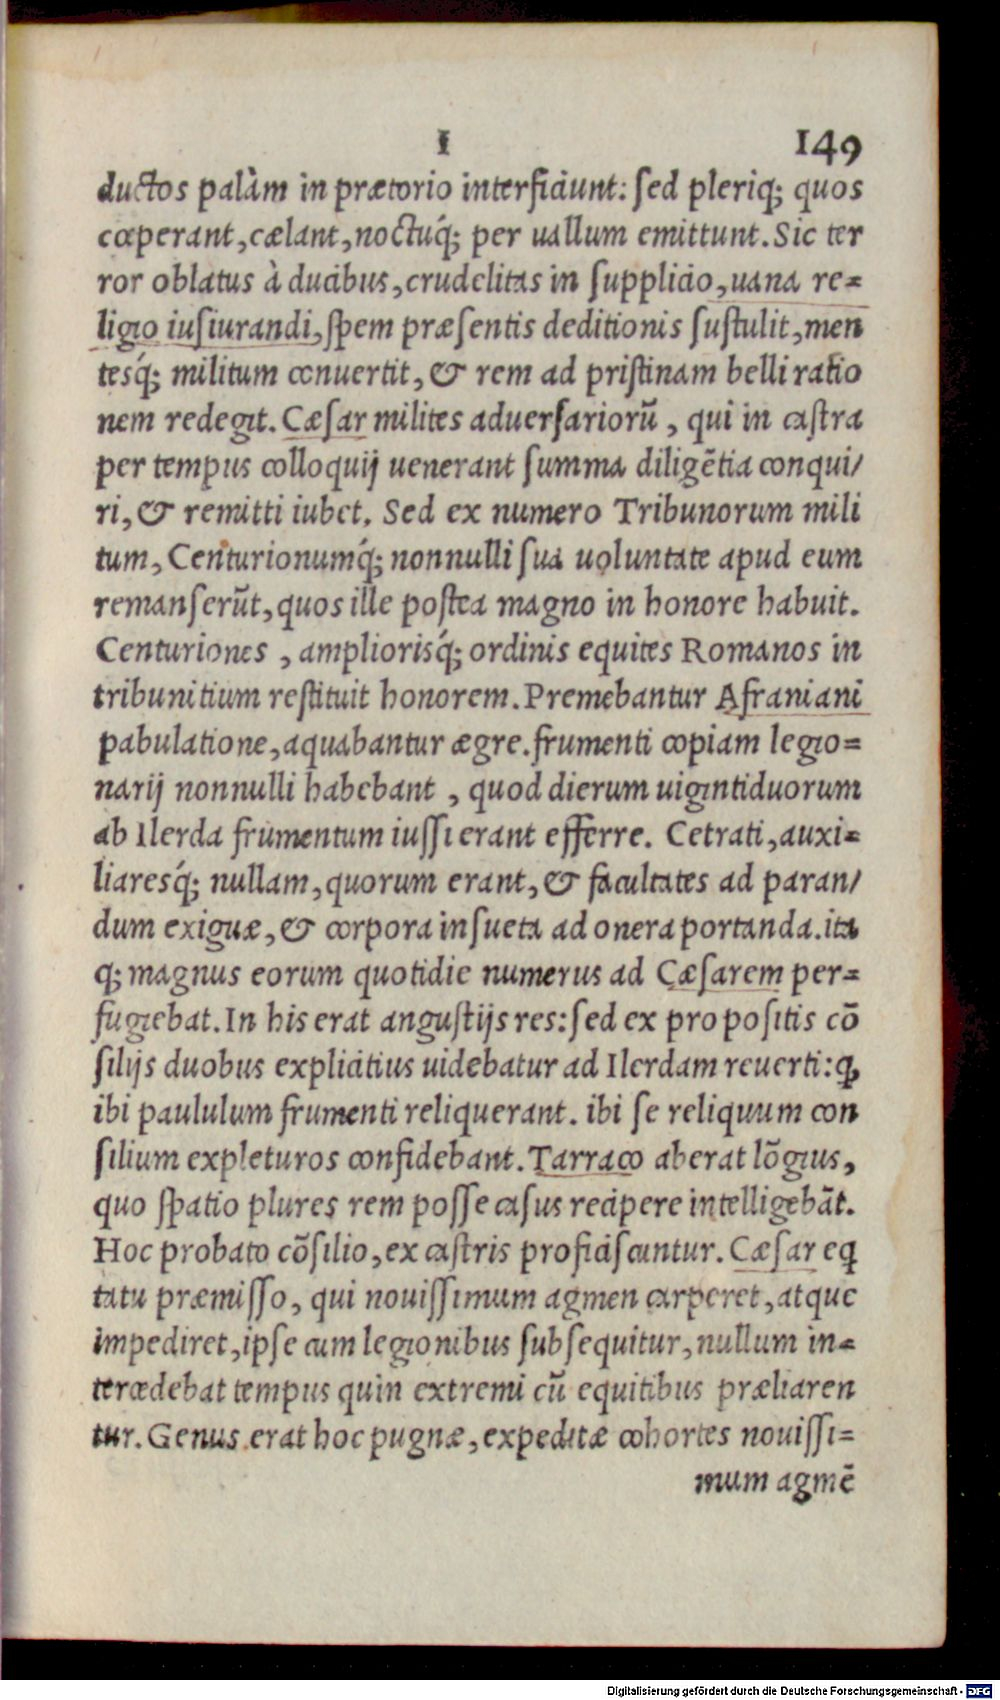 I 149
ductos palàm in prætorio interficiunt: sed pleriq; quos
cœperant, cælant, noctuq́; per uallum emittunt. Sic ter
ror oblatus à ducibus, crudelitas in supplicio, uana re=
ligio iusiurandi, spem præsentis deditionis sustulit, men
tesq́; militum conuertit, & rem ad pristinam belli ratio
nem redegit. Cæsar milites aduersariorũ, qui in castra
per tempus colloquij uenerant summa diligẽtia conqui/
ri, & remitti iubet. Sed ex numero Tribunorum mili
tum, Centurionumq́; nonnulli sua uoluntate apud eum
remanserũt, quos ille postea magno in honore habuit.
Centuriones, ampliorisq́; ordinis equites Romanos in
tribunitium restituit honorem. Premebantur Afraniani
pabulatione, aquabantur ægre. frumenti copiam legio=
narij nonnulli habebant, quod dierum uigintiduorum
ab Ilerda frumentum iussi erant efferre. Cetrati, auxi=
liaresq́; nullam, quorum erant, & facultates ad paran/
dum exiguæ, & corpora insueta ad onera portanda. ita
q; magnus eorum quotidie numerus ad Cæsarem per=
fugiebat. In his erat angustijs res: sed ex propositis cõ
silijs duobus explicitius uidebatur ad Ilerdam reuerti: ꝙ
ibi paululum frumenti reliquerant. ibi se reliquum con
silium expleturos confidebant. Tarraco aberat lõgius,
quo spatio plures rem posse casus recipere intelligebãt.
Hoc probato cõsilio, ex castris proficiscuntur. Cæsar eꝗ
tatu præmisso, qui nouissimum agmen carperet, atque
impediret, ipse cum legionibus subsequitur, nullum in=
tercedebat tempus quin extremi cũ equitibus præliaren
tur. Genus erat hoc pugnæ, expeditæ cohortes nouissi=
mum agmẽ
Digitalisierung gefördert durch die Deutsche Forschungsgemeinschaft - DFG